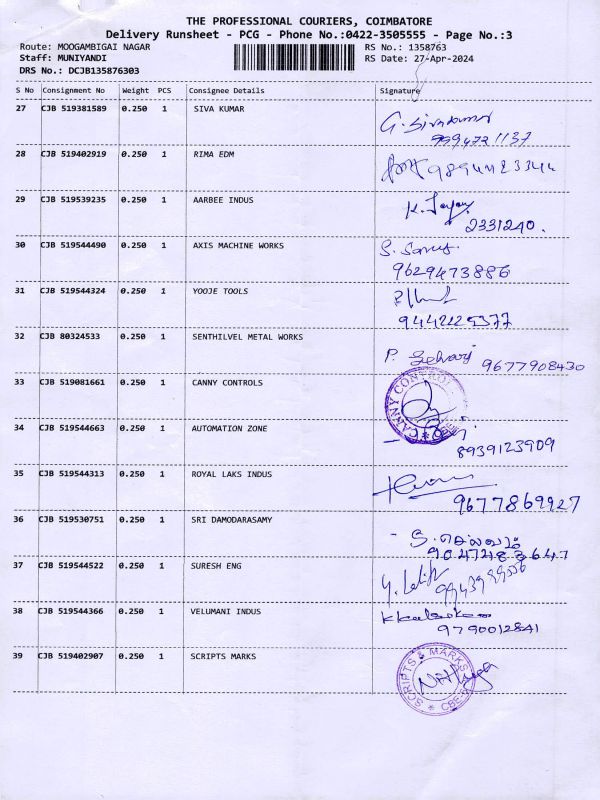 THE PROFESSIONAL COURIERS, COIMBATORE
Delivery Runsheet - PCG - Phone No.:0422-3505555 - Page No.:3
Route: MOOGAMBIGAI NAGAR RS No.: 1358763
Staff: MUNIYANDI RS Date: 27-Apr-2024
DRS No.: DCJB135876303
S No Consignment No Weight PCS Consignee Details Signature
27 CJB 519381589 0.250 1 SIVA KUMAR G. Sivakumar
9994721137
28 CJB 519402919 0.250 1 RIMA EDM
29 CJB 519539235 0.250 1 AARBEE INDUS
2331240.
30 CJB 519544490 0.250 1 AXIS MACHINE WORKS
9629473886
31 CJB 519544324 0.250 1 YOOJE TOOLS
9442125377
32 CJB 80324533 0.250 1 SENTHILVEL METAL WORKS P. Selvaj 9677908430
33 CJB 519081661 0.250 1 CANNY CONTROLS CANNY CONTROL
34 CJB 519544663 0.250 1 AUTOMATION ZONE
8939123909
35 CJB 519544313 0.250 1 ROYAL LAKS INDUS
9677869927
36 CJB 519530751 0.250 1 SRI DAMODARASAMY
9047483647
37 CJB 519544522 0.250 1 SURESH ENG
38 CJB 519544366 0.250 1 VELUMANI INDUS
9790012841
39 CJB 519402907 0.250 1 SCRIPTS MARKS SCRIPTS & MARKS